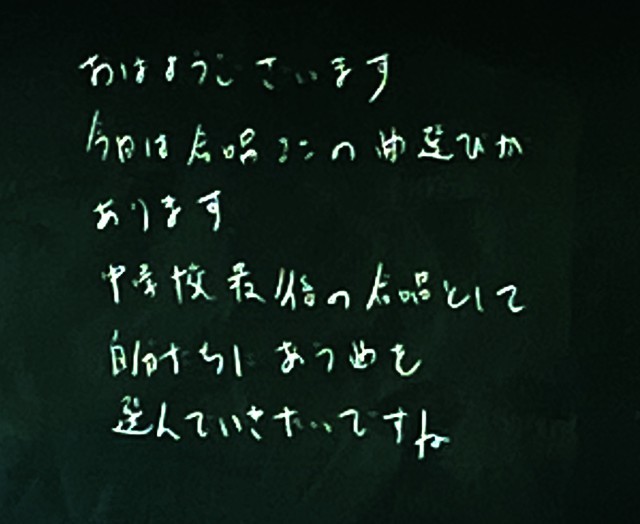 おはようございます
今日は合唱コンの曲選びが
あります
中学校最後の合唱として
自分たちにあう曲を
選んでいきたいですね